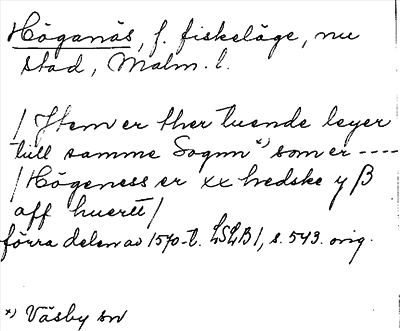 Höganäs, f. fiskeläge, nu
stad, Malm. l.
/ Jtem er ther tuende leyer
till samme Sognn *) som er ----
/ Högeness er xx hedske y β
aff huertt /
förra delen av 1570-t. LSLB 1, s. 543. orig.
*) Väsby sn